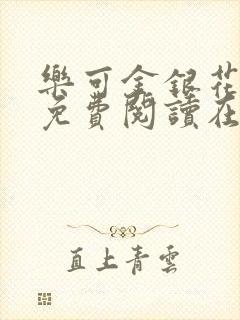 樂可金銀花
免費閱讀在
直上青雲